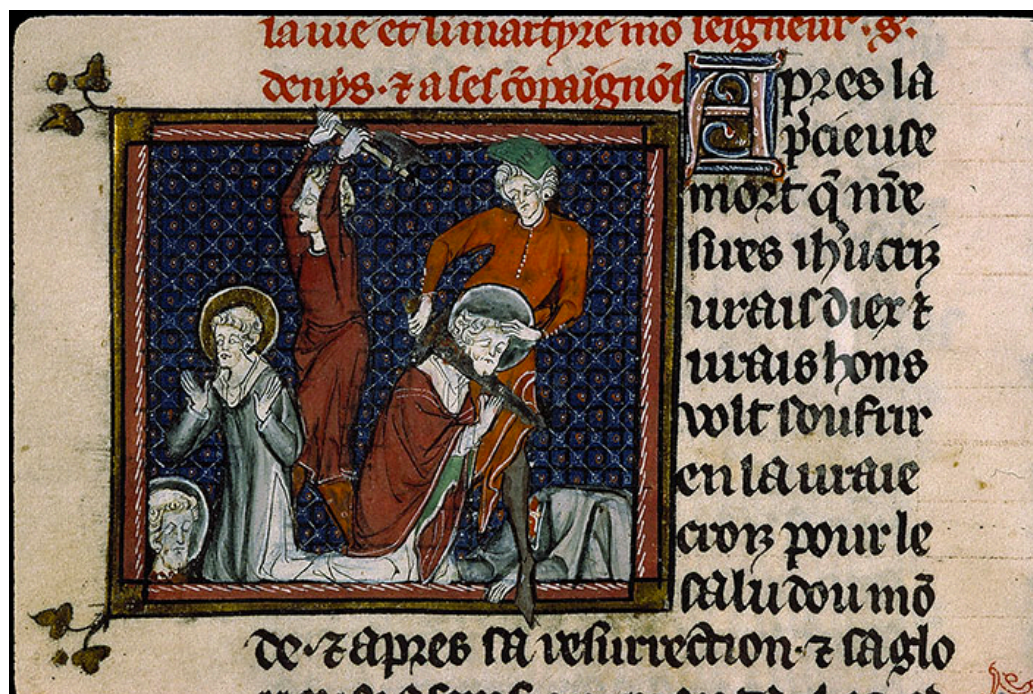 la uie et li martyre mõ seigneur . s .
denys . ⁊ a ses cõpaignõs
Apres la
p̃cieuse
mort q̃ ñre
sires ihũcriz
urais diex ⁊
urais hons
uolt soufrir
en la uraie
croiz pour le
salu dou mõ
de . ⁊ apres sa resurrection . ⁊ sa glo